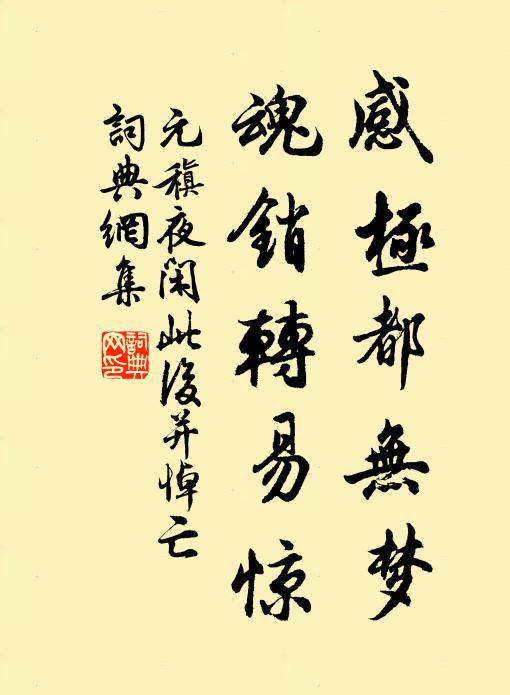 感極都無梦
魂銷轉易惊
元稹夜閑此後并悼亡
詞典網集
詞典网印